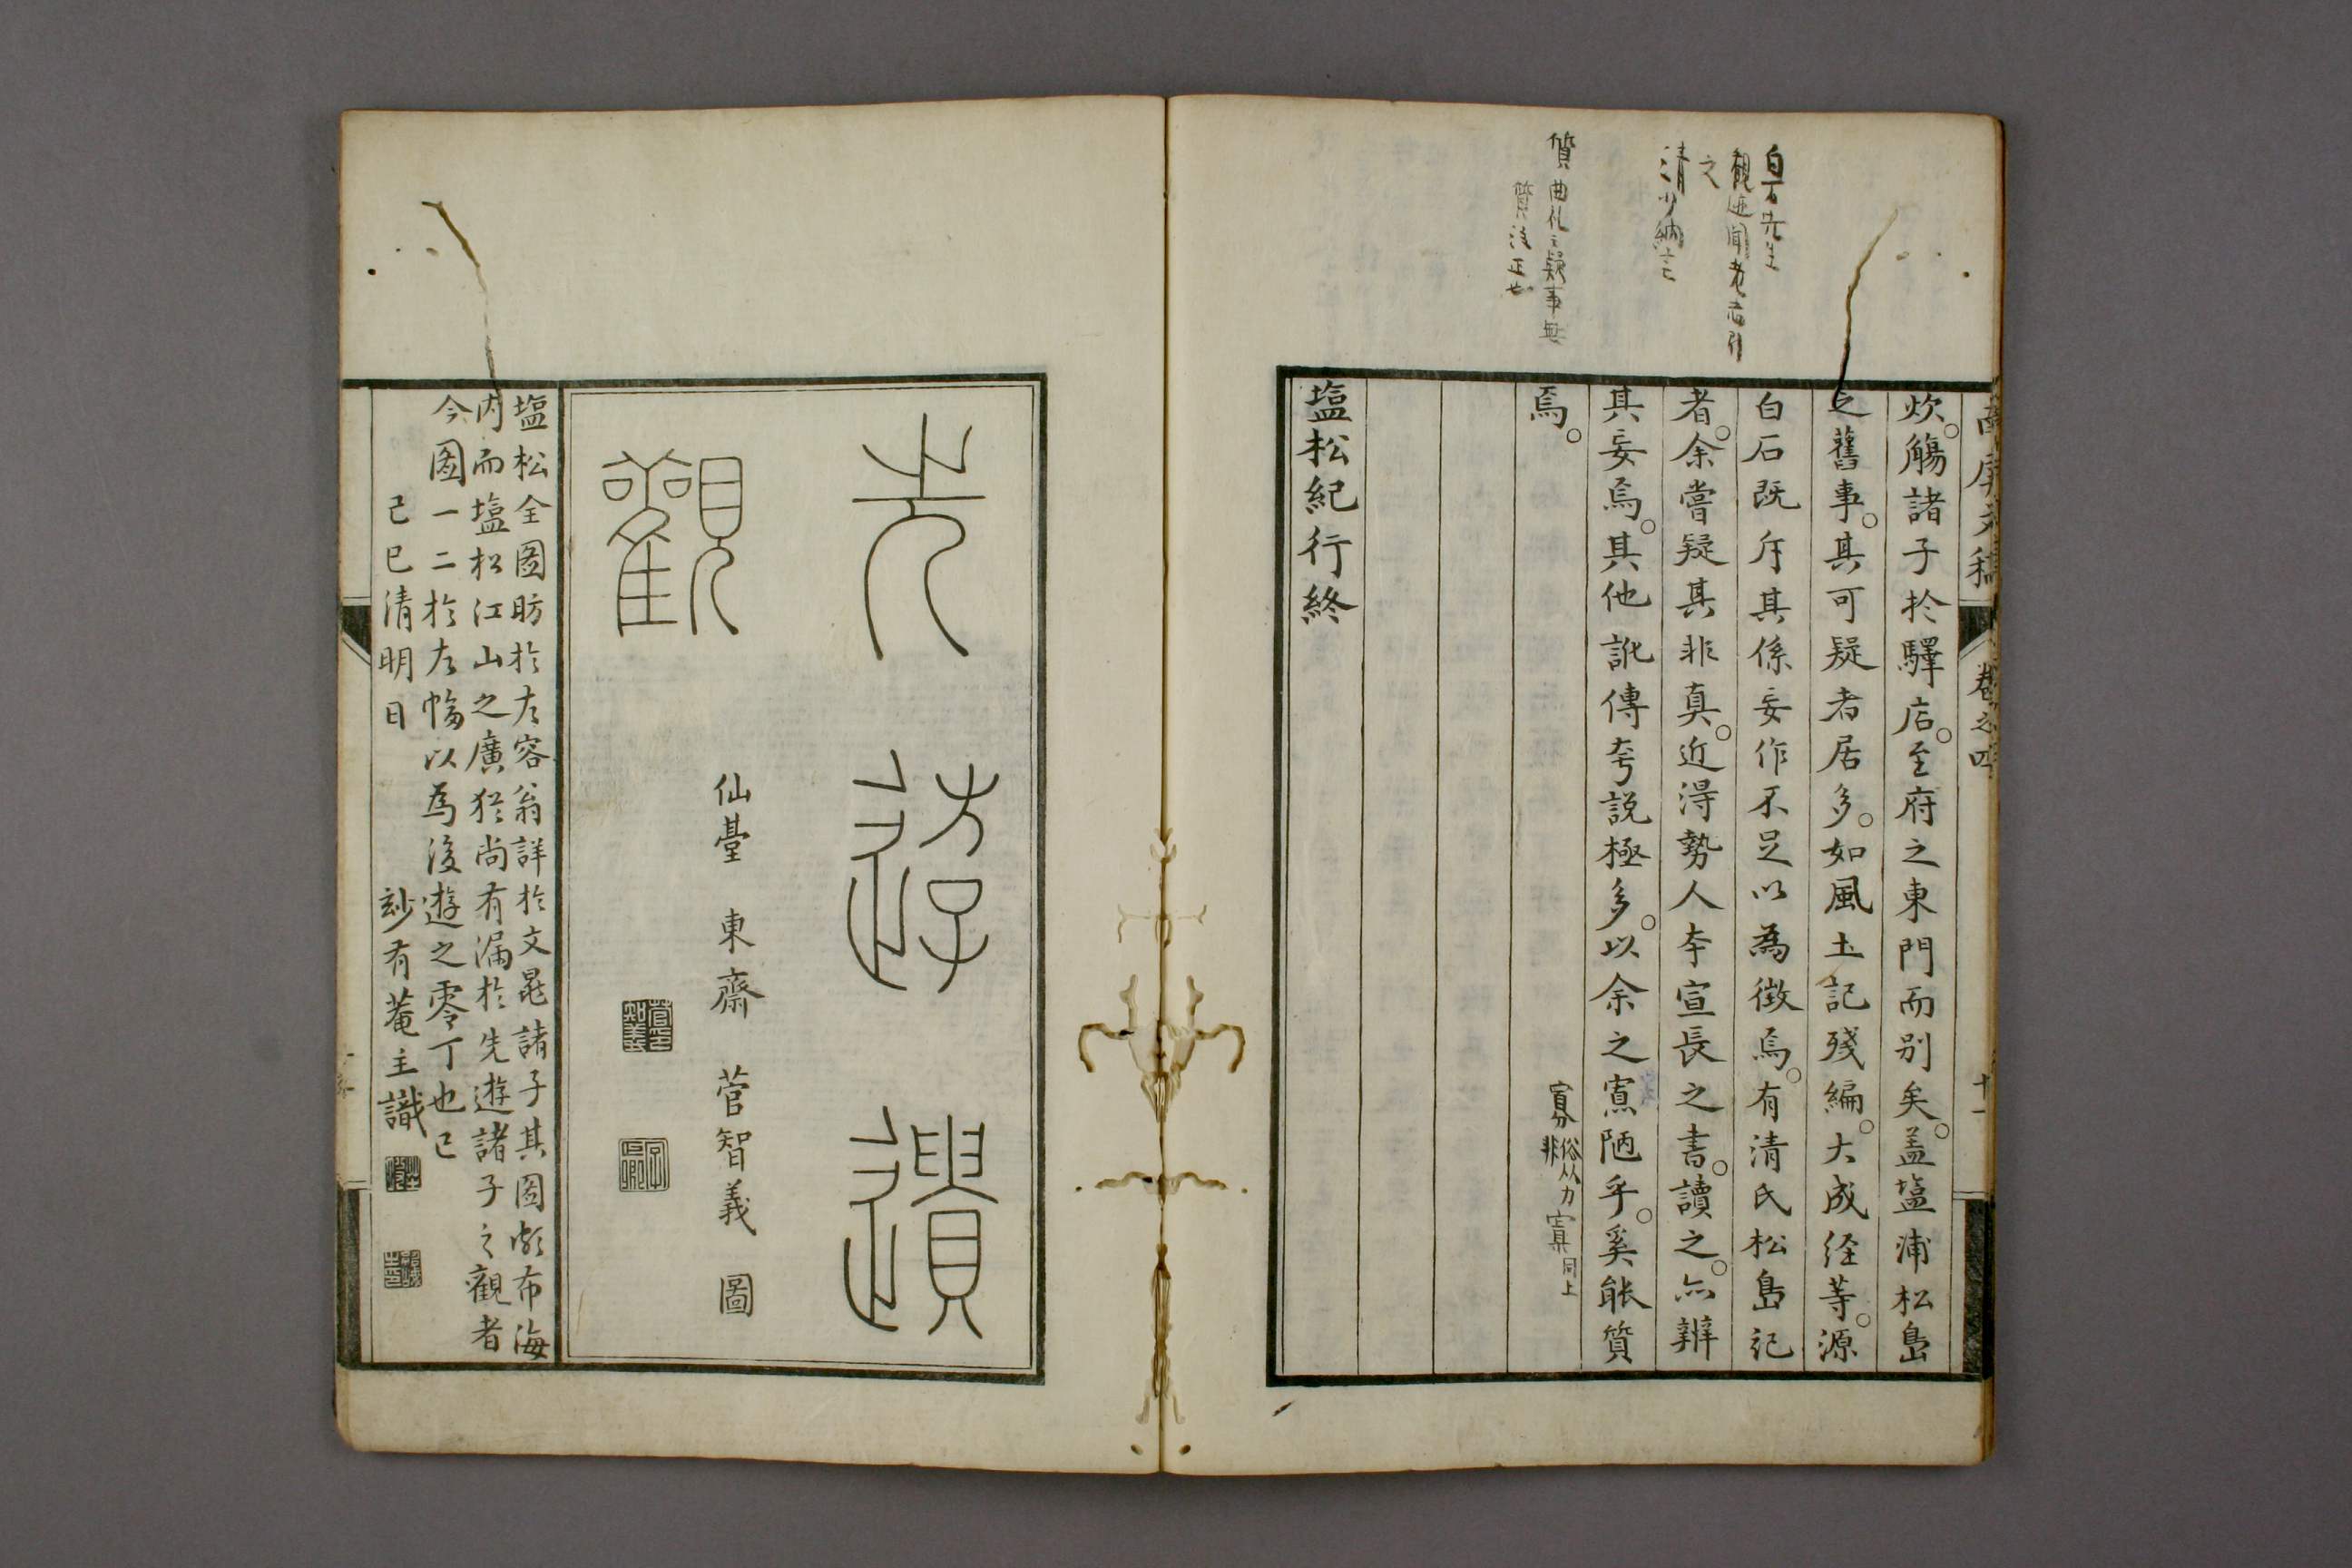 白石先生
觀迹聞老志引
之
清少納言
質 曲礼云疑事無
質注正也
卷之四
十一
炊。觴諸子於驛店。至府之東門而別矣。盖塩浦松島
之舊事。其可疑者居多。如風土記殘編。大成经䓁。源
白石既斥其係妄作不足以為徴焉。有清氏松島記
者。余嘗疑其非真。近淂勢人本宣長之書。讀之。亦辨
其妄焉。其他訛傳夸説極多。以余之寡陋乎。奚能質
焉。
寡俗从力
非
寡同上
塩松紀行終
先游遺
觀
仙臺 東齋 菅智義 圖
塩松全圖昉於左容翁詳於文晁諸子其圖徧布海
内而塩松江山之廣猶尚有漏於先遊諸子之觀者
今圖一二於左幅以為後遊之零丁也已
己巳清明日 玅有菴主識